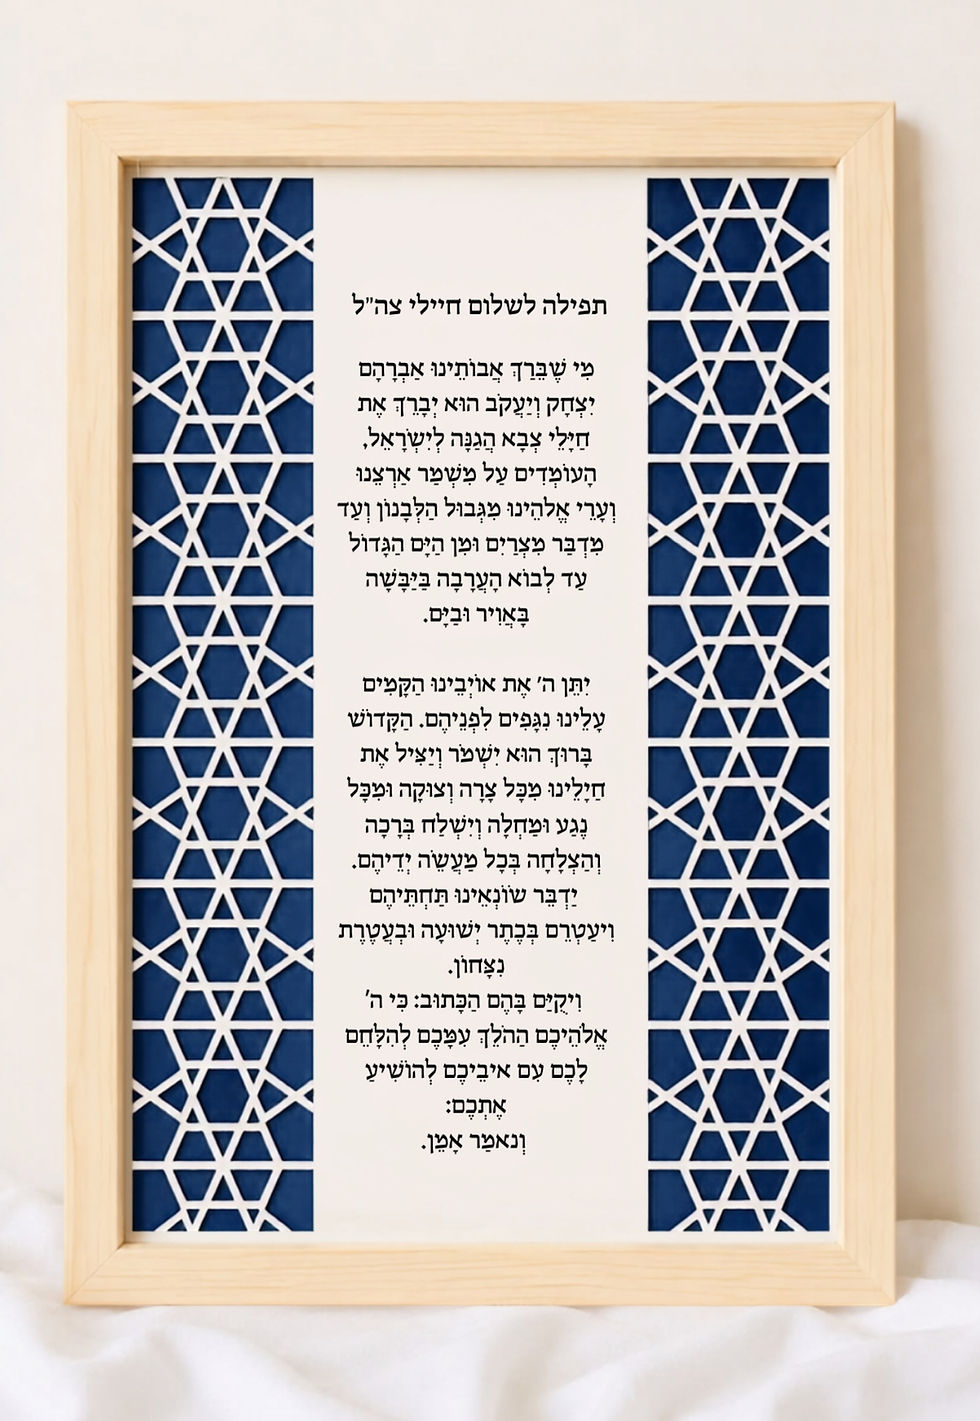 תפילה לשלום חיילי צה"ל
מִי שֶׁבֵּרַךְ אֲבוֹתֵינוּ אַבְרָהָם
יִצְחָק וְיַעֲקֹב הוּא יְבָרֵךְ אֶת
חַיָּלֵי צְבָא הֲגַנָּה לְיִשְׂרָאֵל,
הָעוֹמְדִים עַל מִשְׁמַר אַרְצֵנוּ
וְעָרֵי אֱלֹהֵינוּ מִגְּבוּל הַלְּבָנוֹן וְעַד
מִדְבַּר מִצְרַיִם וּמִן הַיָּם הַגָּדוֹל
עַד לְבוֹא הָעֲרָבָה בַּיַּבָּשָׁה
בָּאֲוִיר וּבַיָּם.
יִתֵּן ה' אֶת אוֹיְבֵינוּ הַקָּמִים
עָלֵינוּ נִגָּפִים לִפְנֵיהֶם. הַקָּדוֹשׁ
בָּרוּךְ הוּא יִשְׁמֹר וְיַצִּיל אֶת
חַיָלֵינוּ מִכָּל צָרָה וְצוּקָה וּמִכָּל
נֶגַע וּמַחְלָה וְיִשְׁלַח בְּרָכָה
וְהַצְלָחָה בְּכָל מַעֲשֵׂה יְדֵיהֶם.
יַדְבֵּר שׂוֹנְאֵינוּ תַּחְתֵּיהֶם
וִיעַטְרֵם בְּכֶתֶר יְשׁוּעָה וּבְעֲטֶרֶת
נִצָּחוֹן.
וִיקֻיַּם בָּהֶם הַכָּתוּב: כִּי ה'
אֱלֹהֵיכֶם הַהֹלֵךְ עִמָּכֶם לְהִלָּחֵם
לָכֶם עִם איבֵיכֶם לְהוֹשִׁיעַ
אֶתְכֶם:
וְנאמַר אָמֵן.